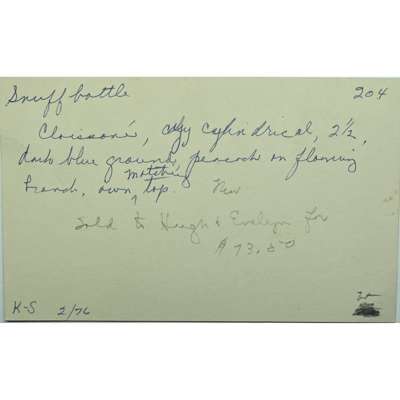 Snuff bottle 204
Cloissoné, cylindrical, 2½,
dark blue ground, peacock on flowing
branch, own matching top. New
Sold to Hugh & Evelyn for
$73.50
K-S 2/76